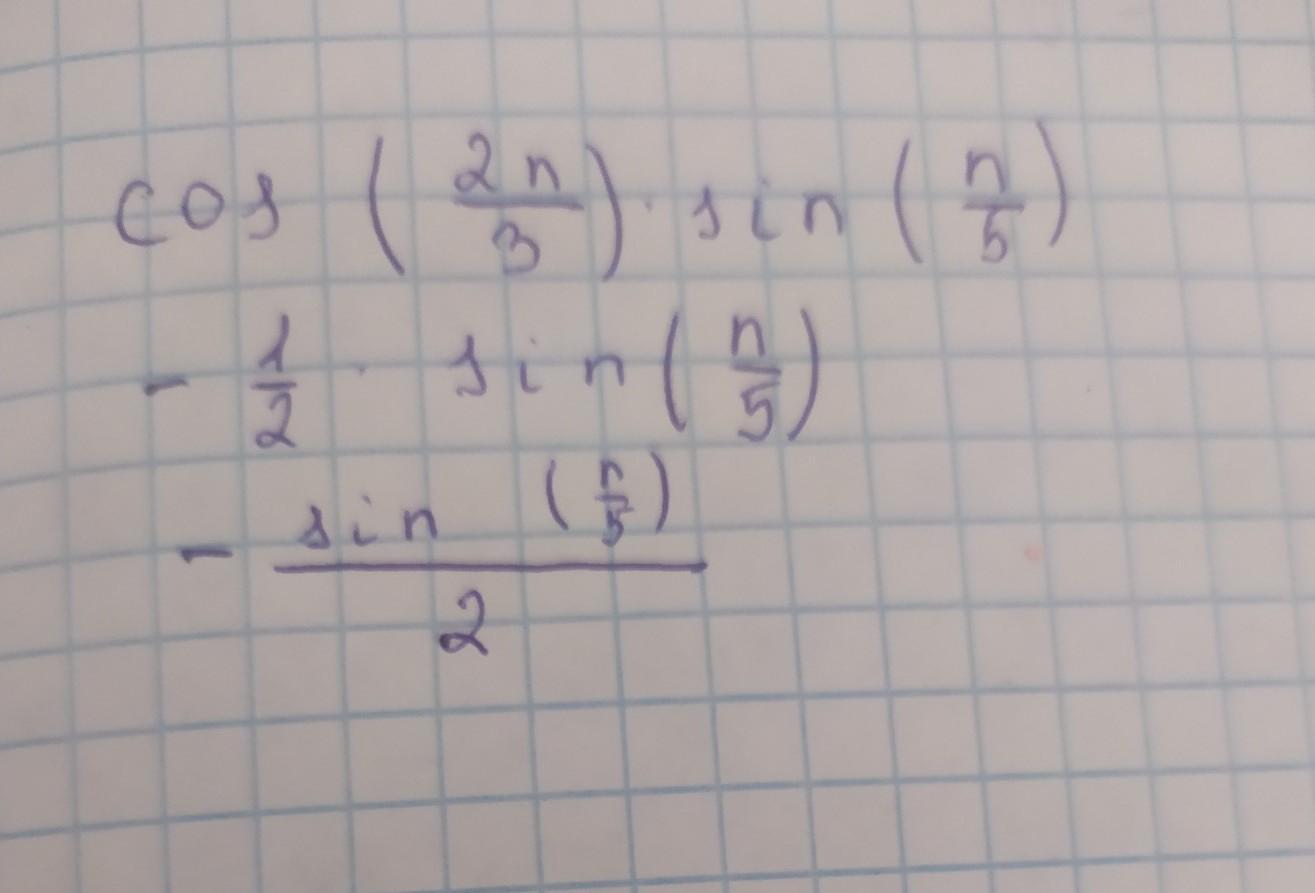 cos (2π/3) · sin (π/5)
- 1/2 · sin (π/5)
- sin (π/5) / 2